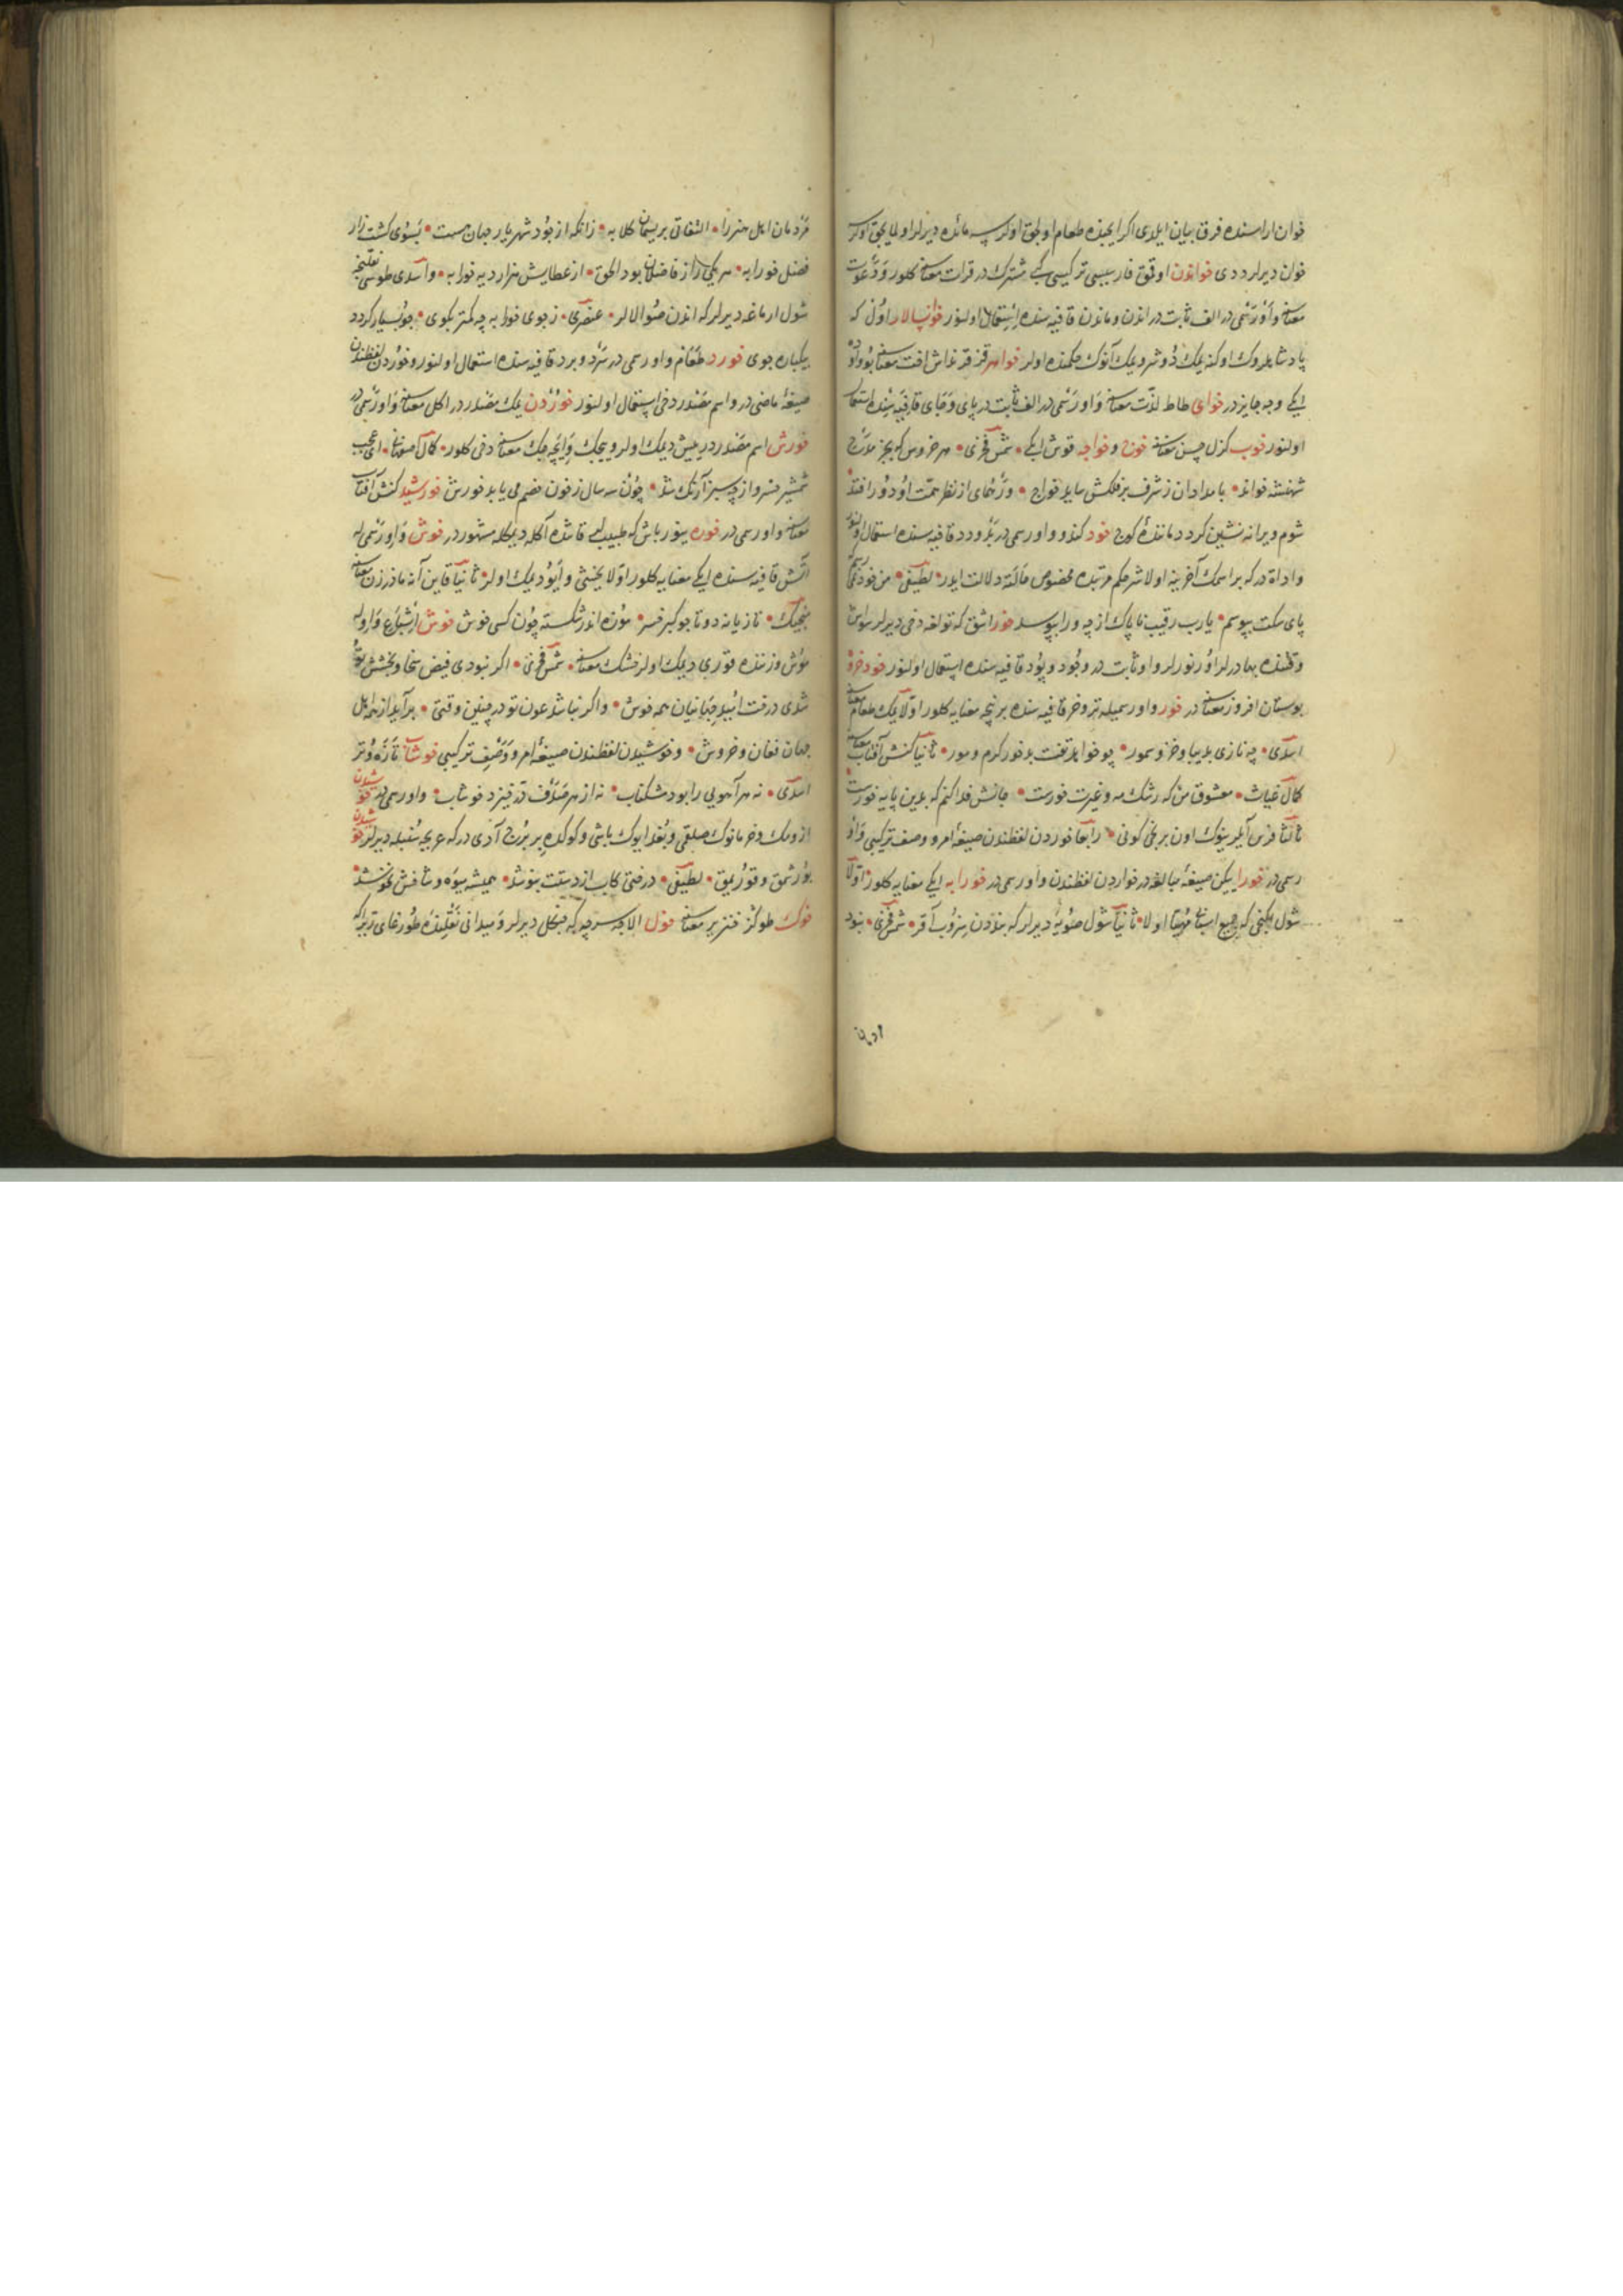 خوان اراسنده فرق بیان ایلدی اکر ایچنده طعام اولجق اولورسه مائده دیرلر اولمایجق اولور
خوان دیرلر ددی خواندن اوقمق فارسیسی ترکیسی کبی مشترک در قرات معناسنه کلور و دعوت
معناسنه واو رسمی در الف ثابت در اندن وماندن قافیه سنده استعمال اولنور خوانسالار اول که
پادشاهلروک اوکنه یمک دوشر دیمک آنوک حکمنده اولر خواهر قز قرنداش اخت معناسنه بونده واو
ایکی وجه جایزدر خوای طاط لذت معناسنه واو رسمی در الف ثابت در پای و جای قافیه سنده استعمال
اولنور خوب کزل حسن معناسنه خوج و خواجه قوش ایبکی شمس فخری هر خروس که بجز مدح
شهنشه خواند بامدادان ز شرف بر فلکش ساید خواج
شوم ویرانه نشین کردد مانندهٔ کوج خود کندو واو رسمی در بد و دد قافیه سنده استعمال اولنور
واداة در که بر اسمک آخرینه اولاشر حکم مرتبده مخصوص مألفته دلالت ایدر لطیفی من خود
پای سکت ببوسم یارب رقیب ناپاک از چه ورا ببوسد خود اشق که تولغه دخی دیرلر سواش
وقتنده بهادرلر اورنورلر واو ثابت در وجود و بود قافیه سنده استعمال اولنور خود خروه
بوستان افروز معناسنه در خور واو رسمیله تر و خر قافیه سنده بر نیچه معنایه کلور اولا یمک طعام معناسنه
اسدی چه نازی بدیبا و خز و سمور چو خواهد تنت بد خور کرم و مور ثانیا کنش آفتاب معناسنه
کمال غیاث معشوق من که رشک مه و غیرت خورست جانش فدا کنم که بدین پایه خورست
ثالثا فرس آیلرینوک اون برنجی کونی رابعا خوردن لفظندن صیغهٔ امر و وصف ترکیبی واو
رسمی در خورا ییکن صیغهٔ مبالغه در خواردن لفظندن واو رسمی در خورابه ایکی معنایه کلور اولا
شول اکینجی که جمیع اسبابی مهیا اولا ثانیا شول صویه دیرلر که بنددن سزوب آقر شمس فخری نبود
مردمان اهل هنر را التفاتی بریسمان کلابه زانکه از جود شهریار جهان هست بسوی کشت زار
فضل خورابه هر یکی را از فاضلان بود الحق از عطایش هزار دیه خورابه و اسدی طوسی نقلنجه
شول ارماغه دیرلر که اندن صو الالر عنصری ز جوی خورابه چه کمتر بکوی چو بسیار کردد
بیکباره جوی خورد طعام واو رسمی در سرد و برد قافیه سنده استعمال اولنور و خوردن لفظندن
صیغهٔ ماضی در و اسم مصدر دخی استعمال اولنور خوردن یمک مصدر در اکل معناسنه واو رسمی در
خورش اسم مصدر در ییش دیمک اولر و ییجک و ایچه جک معناسنه دخی کلور کمال اصفهانی ای عجب
شمشیر خسرو از چه سبز آرنک شد چون سه سال ز خون خصم می یابد خورش خورشید کنش آفتاب
معناسنه واو رسمی در خوره ینور باش که طبیبلر قاتنده آکله دیمکله مشهور در خوش واو رسمی ایله
آتش قافیه سنده ایکی معنایه کلور اولا یخشی و ایو دیمک اولر ثانیا قاین آنه مادر زن معناسنه
منجیک تازیانه دوتا چو کیر خسر موزه اندر شکسته چون کس خوش خوش اشباع واو ایله
موش وزننده قوری دیمک اولر خشک معناسنه شمس فخری اکر نبودی فیض سخا و بخشش تو
شدی درخت امید جهانیان همه خوش واکر نباشد عون تو در چنین وقتی برآید از همه اهل
جهان فغان و خروش و خوشیدن لفظندن صیغهٔ امر و وصف ترکیبی خوشاب تازه و تر
اسدی نه هر آهویی را بود مشکناب نه از هر صدف در خیزد خوشاب واو رسمی در خوشیدن
ازومک و خرمانوک صلقمی و بغدایوک باشی و کوکده بر برج آدی در که عربجه سنبله دیرلر خوشیدن
بورشمق و قوریمق لطیفی درختی کاب از دستت بنوشد همیشه میوه و شاخش نخوشد
خوک طوکز خنزیر معناسنه خول الاجه سرچه که چنکل دیرلر و میدانی نقلنده طورغای تیره که